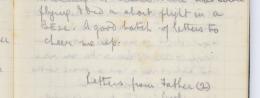 flying. I had a short flight in a
BE2c. A good batch of letters to
cheer me up.
Letters from Father (2)